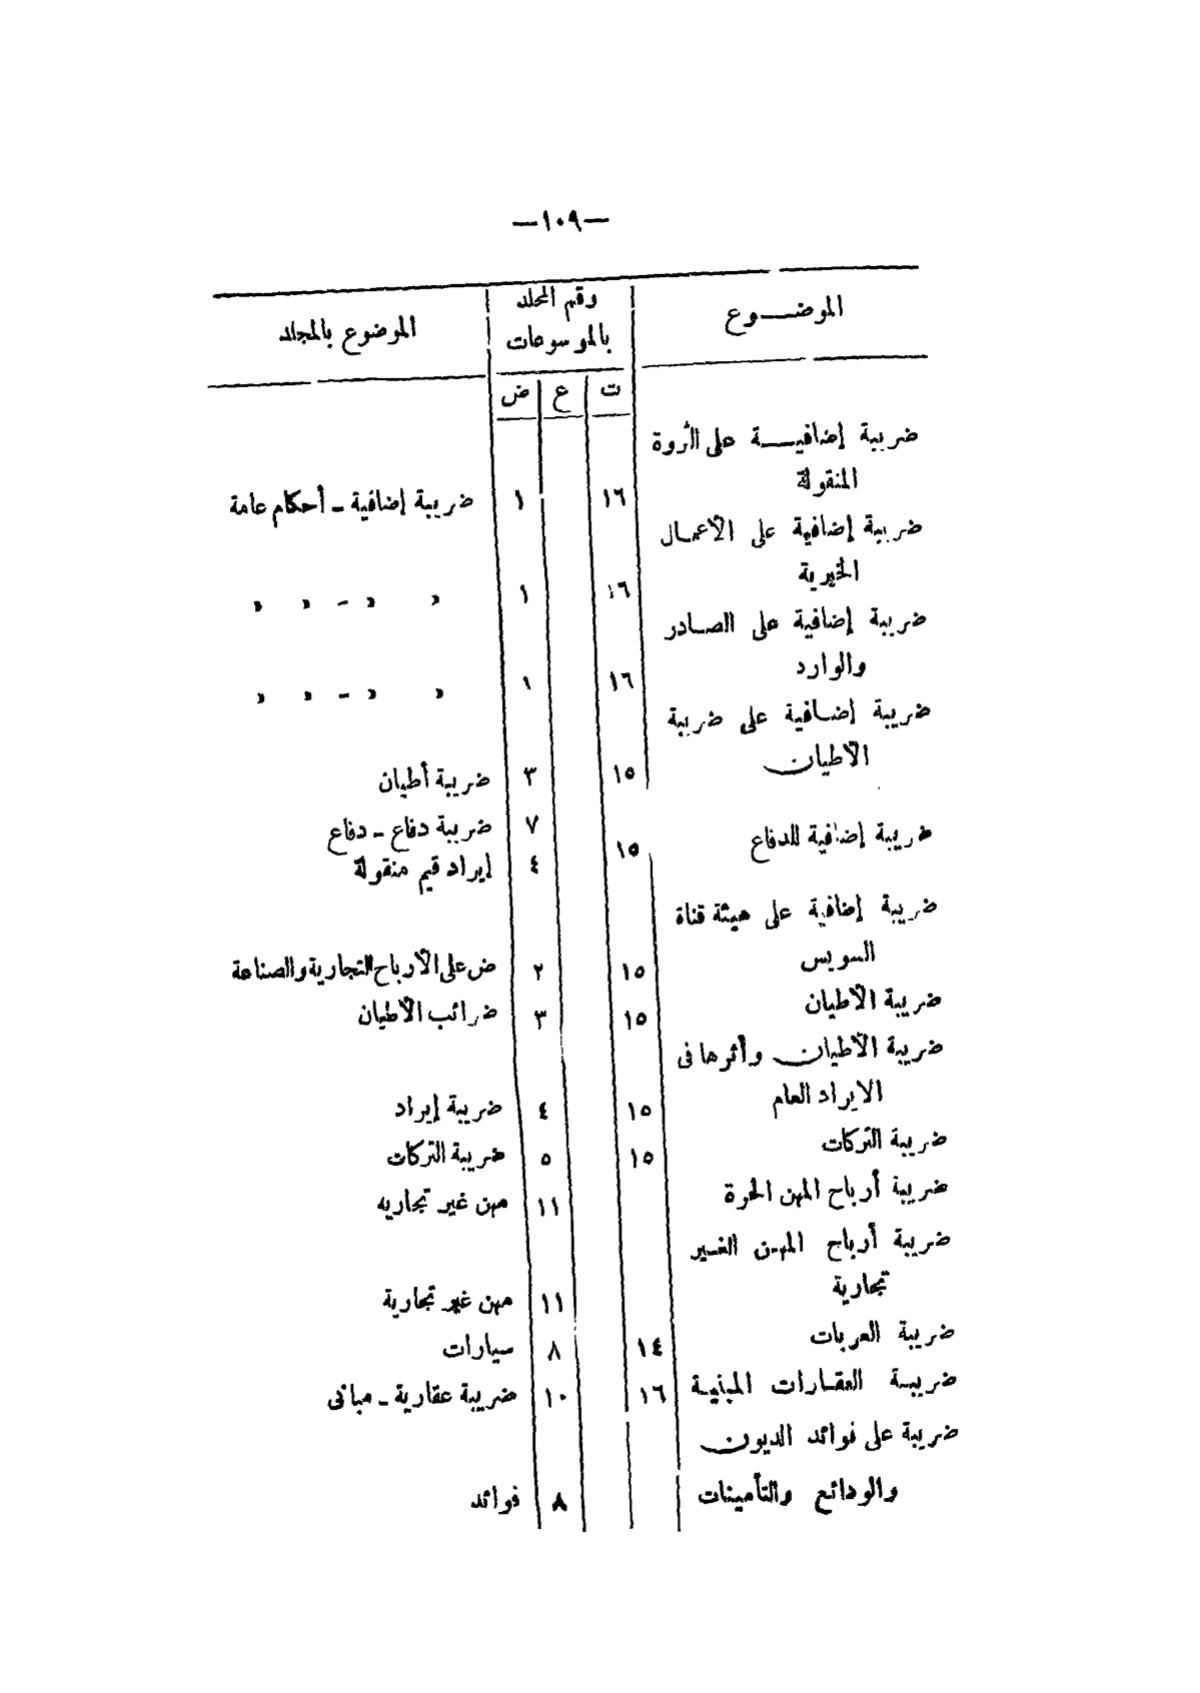 —١٠٩—
الموضــوع
رقم المجلد
بالموسوعات
الموضوع بالمجلد
ت ع ض
ضريبة إضافيــة على الثروة
المنقولة ١٦ ١ ضريبة إضافية - أحكام عامة
ضريبة إضافية على الأعمال
الخيرية ١٦ ١ » » - » »
ضريبة إضافية على الصادر
والوارد ١٦ ١ » » - » »
ضريبة إضافية على ضريبة
الأطيان ١٥ ٣ ضريبة أطيان
ضريبة إضافية للدفاع ١٥ ٧ ضريبة دفاع - دفاع
٤ إيراد قيم منقولة
ضريبة إضافية على هيئة قناة
السويس ١٥ ٢ ض على الأرباح التجارية والصناعة
ضريبة الأطيان ١٥ ٣ ضرائب الأطيان
ضريبة الأطيان وأثرها فى
الايراد العام ١٥ ٤ ضريبة إيراد
ضريبة التركات ١٥ ٥ ضريبة التركات
ضريبة أرباح المهن الحرة ١١ مهن غير تجاريه
ضريبة أرباح المهن الغير
تجارية ١١ مهن غير تجارية
ضريبة العربات ١٤ ٨ سيارات
ضريبة العقارات المبنية ١٦ ١٠ ضريبة عقارية - مبانى
ضريبة على فوائد الديون
والودائع والتأمينات ٨ فوائد